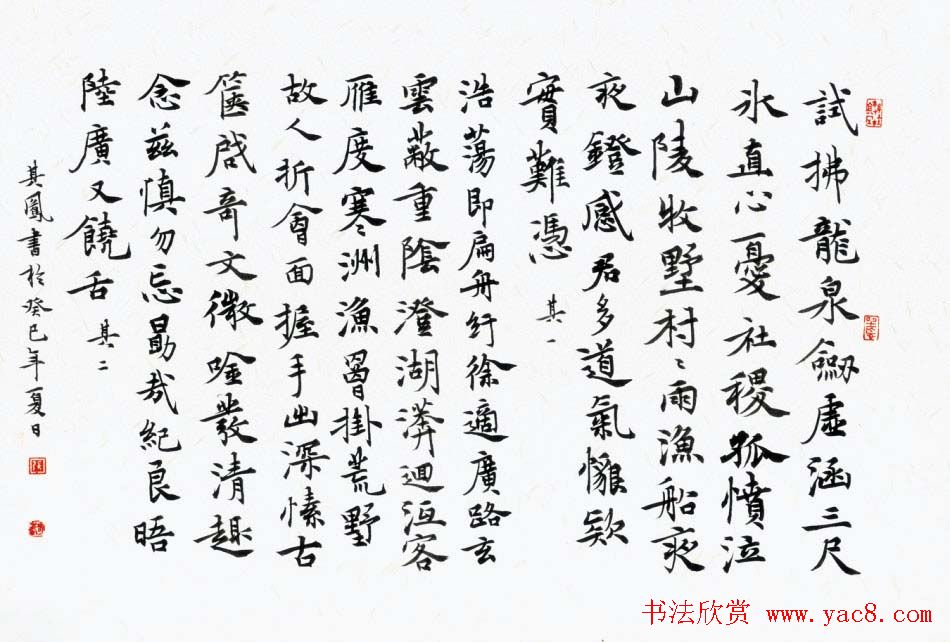 試拂龍泉劔虛涵三尺
氷直心憂社稷孤憤泣
山陵牧墅村〻雨漁船夜
夜鐙感君多道氣懶欵
實難憑 其一
浩蕩即扁舟紆徐適廣路玄
雲蔽重隂澄湖漭迴沍客
雁度寒洲漁罾掛荒墅
故人折會面握手出深愫古
篋啟奇文微唫發清趣
念茲慎勿忘勖哉紀良晤
陸廣又饒舌 其二
其鳳書於癸巳年夏日
书法欣赏 www.yac8.com